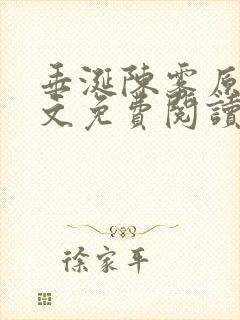 垂涎陳雾原
文免費閱讀
徐家平